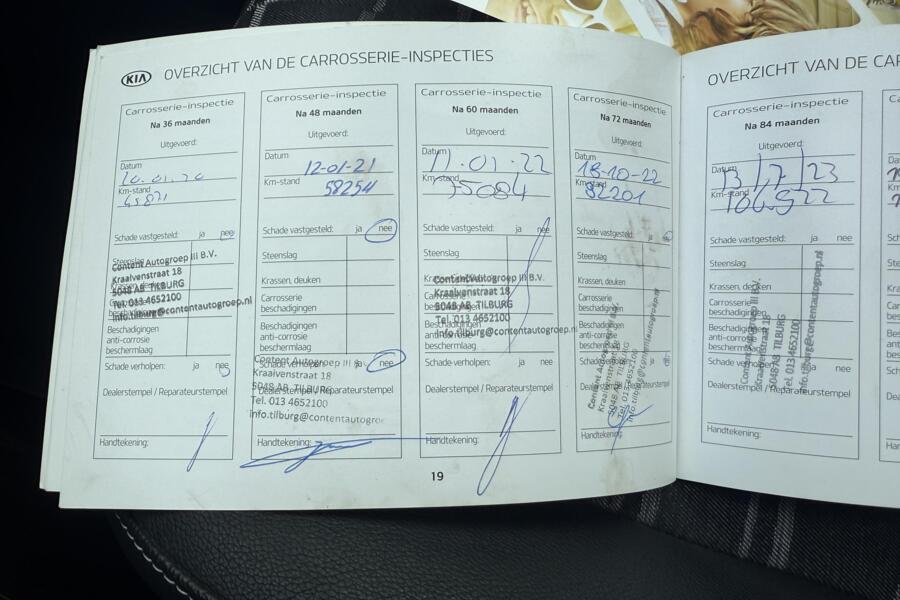 KIA OVERZICHT VAN DE CARROSSERIE-INSPECTIES
Carrosserie-inspectie
Na 36 maanden
Uitgevoerd:
Datum
10.01.20
Km-stand
45871
Schade vastgesteld: ja nee
Steenslag
Content Autogroep III B.V.
Kraalvenstraat 18
5048 AB TILBURG
Tel. 013 4652100
info.tilburg@contentautogroep.nl
Beschadigingen
anti-corrosie
beschermlaag
Schade verholpen: ja nee
Dealerstempel / Reparateurstempel
Handtekening:
Carrosserie-inspectie
Na 48 maanden
Uitgevoerd:
Datum
12-01-21
Km-stand
58254
Schade vastgesteld: ja nee
Steenslag
Krassen, deuken
Carrosserie
beschadigingen
Beschadigingen
anti-corrosie
beschermlaag
Schade verholpen: ja nee
Content Autogroep III B.V.
Kraalvenstraat 18
5048 AB TILBURG
Dealerstempel / Reparateurstempel
Tel. 013 4652100
info.tilburg@contentautogroe
Handtekening:
Carrosserie-inspectie
Na 60 maanden
Uitgevoerd:
Datum
11.01.22
Km-stand
75084
Schade vastgesteld: ja nee
Steenslag
Content Autogroep III B.V.
Kraalvenstraat 18
5048 AB TILBURG
Tel. 013 4652100
info.tilburg@contentautogroep.nl
beschermlaag
Schade verholpen: ja nee
Dealerstempel / Reparateurstempel
Handtekening:
Carrosserie-inspectie
Na 72 maanden
Uitgevoerd:
Datum
18-10-22
Km-stand
92201
Schade vastgesteld: ja
Steenslag
Krassen, deuken
Carrosserie
beschadigingen
Beschadigingen
anti-corrosie
beschermlaag
Dealerstempel / Reparateurstempel
Content Autogroep III B.V.
Kraalvenstraat 18
5048 AB TILBURG
Tel. 013 4652100
info.tilburg@contentautogroep.nl
Handtekening:
19
OVERZICHT VAN DE CAR
Carrosserie-inspectie
Na 84 maanden
Uitgevoerd:
Datum
13/7/23
Km-stand
106922
Schade vastgesteld: ja nee
Steenslag
Krassen, deuken
Carrosserie
beschadigingen
Beschadigingen
anti-corrosie
beschermlaag
Schade verholpen: ja nee
Dealerstempel / Reparateurstempel
Content Autogroep III B.V.
Kraalvenstraat 18
5048 AB TILBURG
Tel. 013 4652100
info.tilburg@contentautogroep.nl
Handtekening: